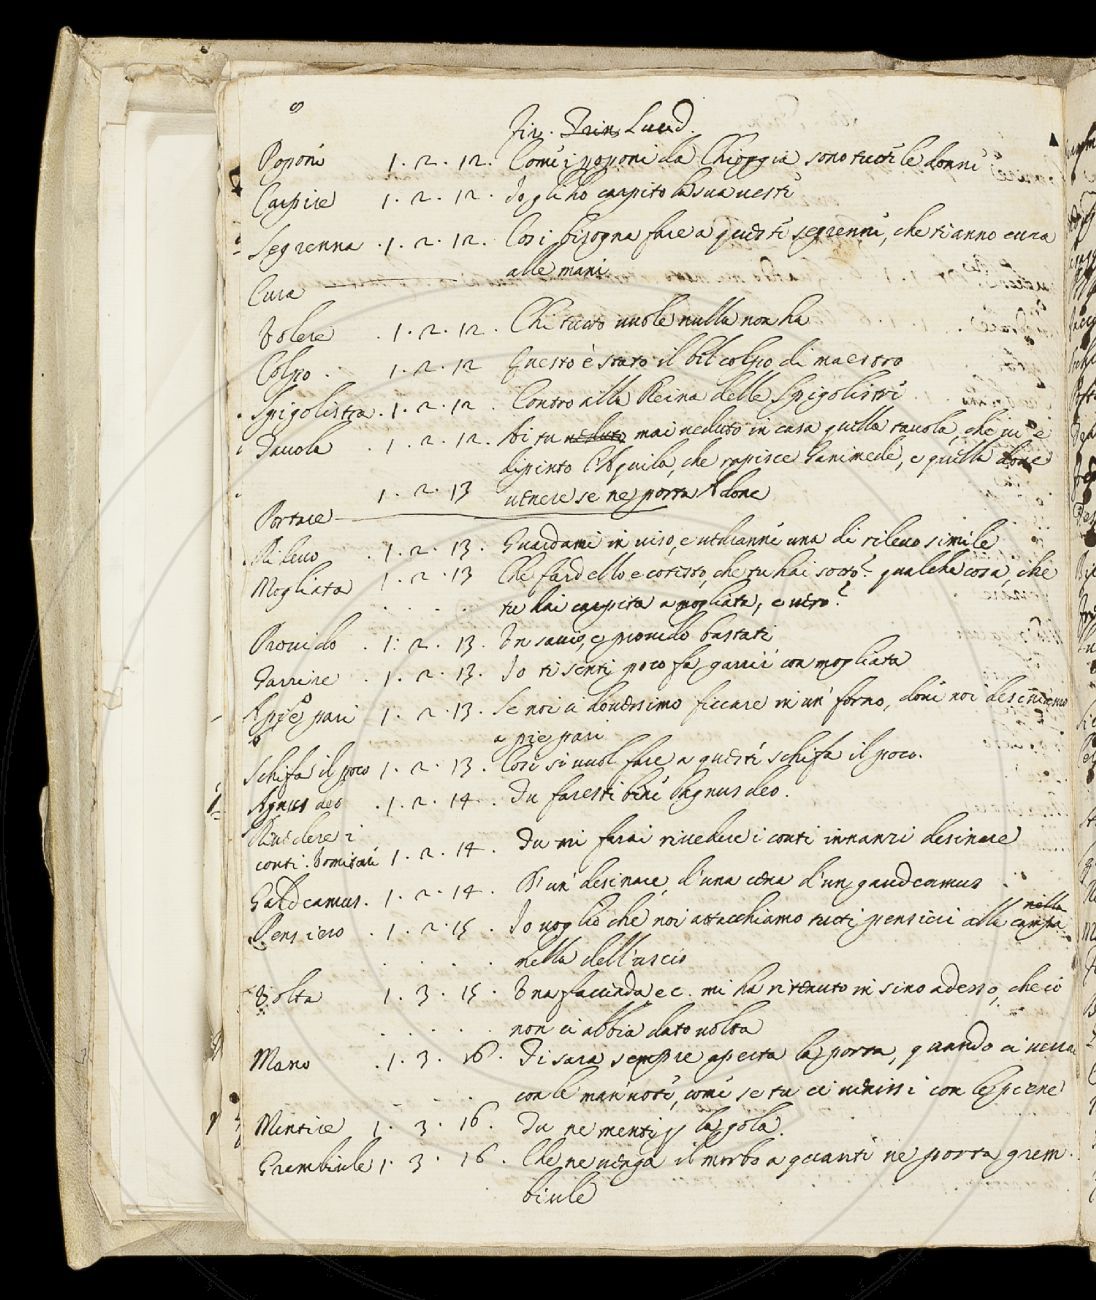 8
Fir. Trin. Lucid.
Poponi 1. 2. 12. Come i poponi da Chioggia sono tutte le donne
Carpire 1. 2. 12. Io gli ho carpito la sua veste
Segrenna . 1. 2. 12. Cosi bisogna fare a queste segrenne, che ti anno cura
alle mani
Cura
Volere . 1. 2. 12. Chi tutto vuole nulla non ha
Colpo . 1. 2. 12 Questo è stato il bel colpo di maestro
Spigolistra . 1. 2. 12 . Contro alla Reina delle Spigolistre
Tavola . 1. 2. 12. Ai tu veduto mai veduto in casa quella tavola, che vi è
dipinto l'Aquila, che rapisce Ganimede, e quella dove
1. 2. 13 venere se ne porta Adone
Portare
Rilevo . 1. 2. 13. Guardami in viso, e vedianne una di rilevo simile
Mogliata 1. 2. 13 Che fardello e cotesto, che tu hai sotto? qualche cosa, che
tu hai carpita a mogliata, e vero?
Provido . 1. 2. 13. Un savio, e provido bastati
Garrire . 1. 2. 13. Io ti senti poco fa garrir con mogliata
A piè pari 1. 2. 13. Se noi ci dovessimo ficcare in un' forno, dove noi desiniamo
a piè pari
Schifa il poco 1. 2. 13. Cosi si vuol fare a queste schifa il poco.
Agnus deo . 1. 2. 14. Tu faresti bene Agnus deo.
Rivedere i
conti 1. 2. 14. Tu mi farai rivedere i conti innanzi desinare
Gaudeamus . 1. 2. 14. D'un' desinare, d'una cena d'un gaudeamus
nella
Pensiero . 1. 2. 15 . Io voglio che noi attacchiamo tutti pensieri alla campa-
nella dell'uscio
Volta 1. 3. 15. Una facenda ec. mi ha ritenuto in sino adesso, che io
non ci abbia dato volta
Mano . 1. 3. 16. Ti sara sempre aperta la porta, quando ci verrai
con le man' note, come se tu ci venissi con le piene
Mentire 1. 3. 16. Tu ne menti p. la gola
Grembiule 1. 3. 16. Che ne venga il morbo a quante ne porta grem-
biule